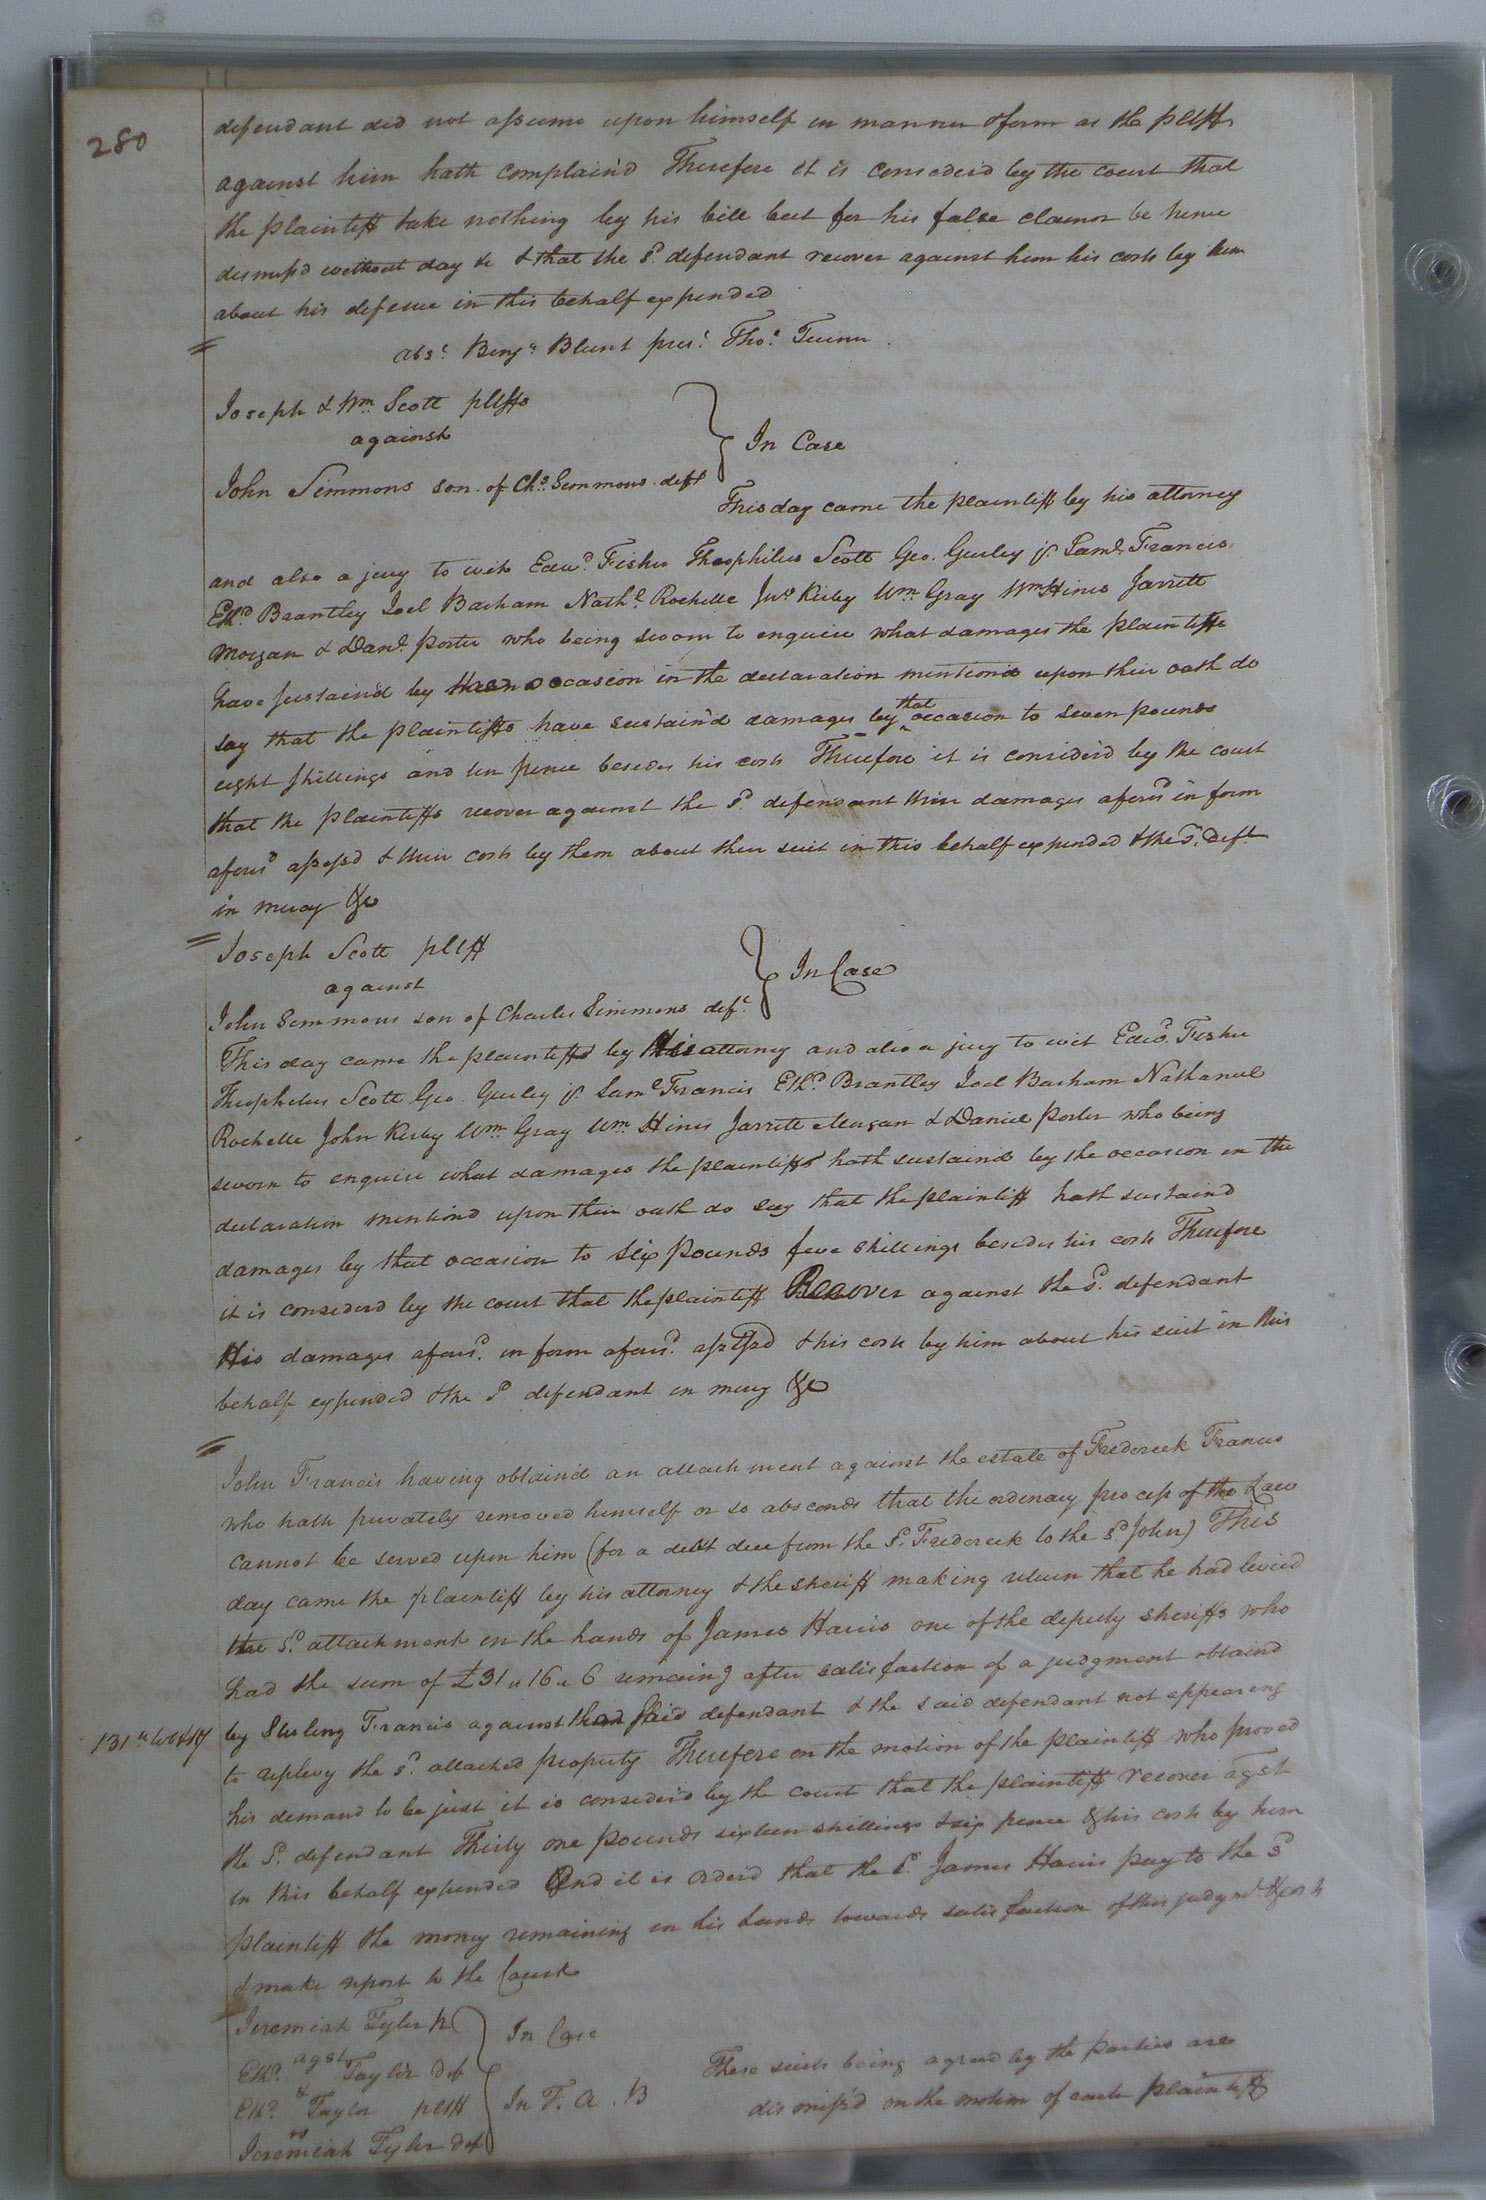 280
defendant did not assume upon himself in manner & form as the pltff
against him hath complain'd Therefore it is consider'd by the court that
the plaintiff take nothing by his bill but for his false clamor be hence
dismiss'd without day &c & that the sd. defendant recover against him his costs by him
about his defence in this behalf expended
abst. Benjn. Blunt prest. Thos. Turner
Joseph & Wm. Scott pltffs
against
In Case
John Simmons son of Chs. Simmons deft
This day came the plaintiff by his attorney
and also a jury to wit Edwd. Fisher Theophilus Scott Geo. Gurley jr. Saml. Francis
Ethd. Brantley Joel Barham Nathl. Rochelle Jno. Kirby Wm. Gray Wm. Hines Jarrett
Morgan & Danl. Porter who being sworn to enquire what damages the plaintiffs
have sustain'd by occasion in the declaration mention'd upon their oath do
say that the plaintiffs have sustain'd damages by that occasion to seven pounds
eight shillings and ten pence besides his costs Therefore it is consider'd by the court
that the plaintiffs recover against the sd. defendant their damages aforesd in form
aforesd assess'd & their costs by them about their suit in this behalf expended & the sd. deft.
in mercy &c
Joseph Scott pltff
against
In Case
John Simmons son of Charles Simmons deft.
This day came the plaintiff by his attorney and also a jury to wit Edwd. Fisher
Theophilus Scott Geo. Gurley jr. Saml Francis Ethd. Brantley Joel Barham Nathaniel
Rochelle John Kirby Wm. Gray Wm. Hines Jarrett Morgan & Daniel Porter who being
sworn to enquire what damages the plaintiff hath sustaind by the occasion in the
declaration mention'd upon their oath do say that the plaintiff hath sustaind
damages by that occasion to six pounds five shillings besides his costs Therefore
it is considerd by the court that the plaintiff Recover against the sd. defendant
His damages aforesd. in form aforesd. assess'd & his costs by him about his suit in this
behalf expended & the sd defendant in mercy &c
John Francis having obtain'd an attachment against the estate of Frederick Francis
who hath privately removed himself or so absconds that the ordinary process of the Law
cannot be served upon him (for a debt due from the sd. Frederick to the sd John) This
day came the plaintiff by his attorney & the sheriff making return that he had levied
the sd. attachment in the hands of James Harris one of the deputy sheriffs who
had the sum of £31 " 16 " 6 remaing after satisfaction of a judgment obtaind
by Sterling Francis against said defendant & the said defendant not appearing
131
to replevy the sd. attached property Therefore on the motion of the plaintiff who proved
his demand to be just it is consider'd by the court that the plaintiff recover agst
the sd. defendant Thirty one pounds sixteen shillings & six pence & his costs by him
in this behalf expended And it is order'd that the sd. James Harris pay to the sd
plaintiff the money remaining in his hands towards satisfaction of this judgmt. & costs
& make report to the Court
Jeremiah Tyler pl
agst
In Case
Ethd. Taylor def
&
Ethd. Taylor pltff
In T. A. B
vs
Jeremiah Tyler def
These suits being agreed by the parties are
dismiss'd on the motion of each plaintiff